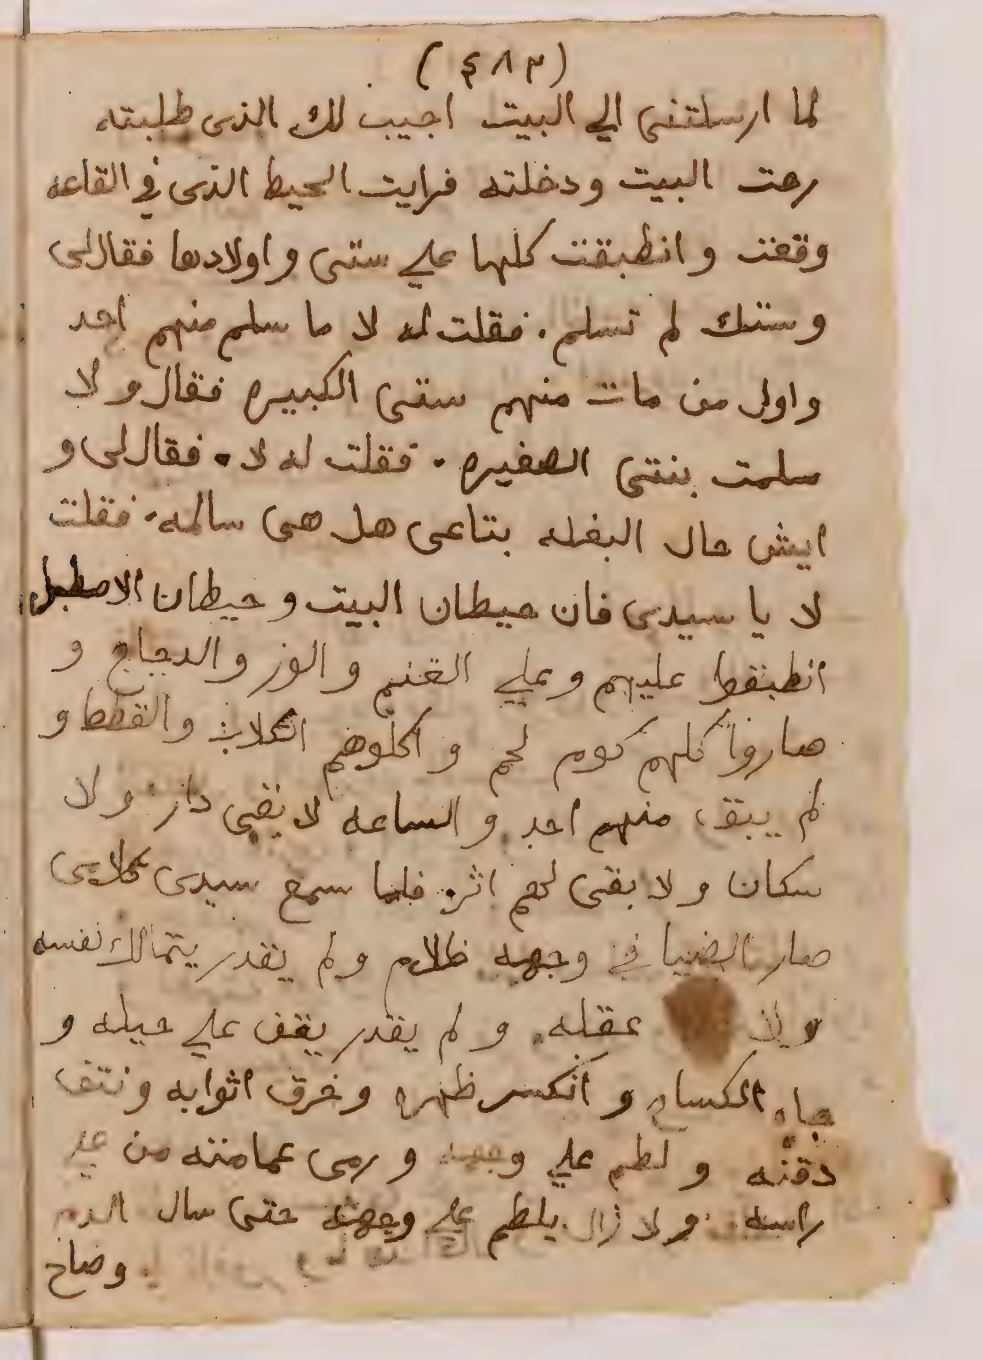 (٤٨٣)
لما ارسلتنى الي البيت اجيب لك الذى طلبته
رحت البيت ودخلته فرايت الحيط الذى في القاعه
وقعت و انطبقت كلها علي ستى و اولادها فقال لى
و ستك لم تسلم . فقلت له لا ما سلم منهم احد
و اول من مات منهم ستى الكبيره فقال و لا
سلمت بنتى الصغيره . فقلت له لا . فقال لى و
ايش حال البغله بتاعى هل هى سالمه . فقلت
لا يا سيدى فان حيطان البيت و حيطان الاصطبل
انطبقط عليهم و علي الغنم و الوز و الدجاج و
صاروا كلهم كوم لحم و اكلوهم الكلاب والقطط و
لم يبق منهم احد و الساعه لا بقى دار و لا
سكان و لا بقى لهم اثر . فلما سمع سيدى كلامى
صار الضيا في وجهه ظلام و لم يقدر يتمالك نفسه
ولا عقله و لم يقدر يقف علي حيله و
جاه الكساح و انكسر ظهره و خرق اثوابه و نتف
دقنه و لطم علي وجهه و رمى عمامته من علي
راسه و لا زال يلطم علي وجهه حتى سال الدم
وصاح